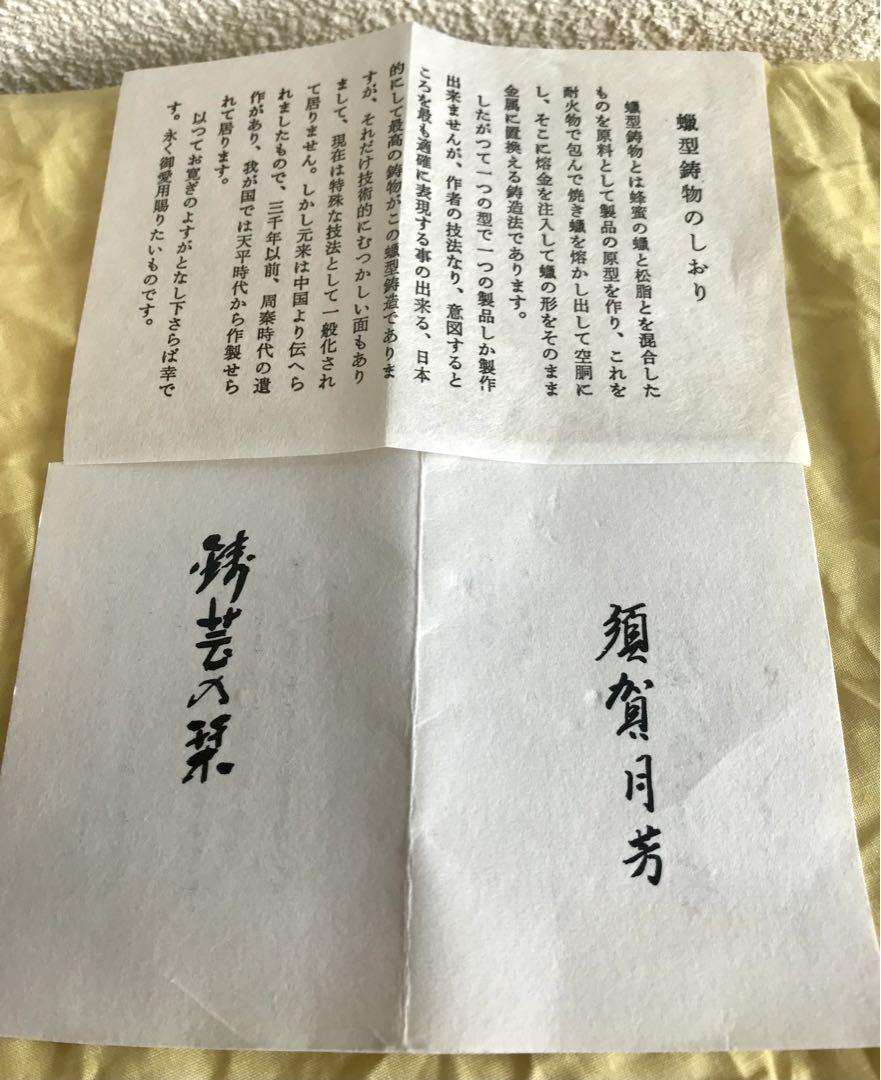 蠟型鋳物のしおり
蠟型鋳物とは蜂蜜の蠟と松脂とを混合した
ものを原料として製品の原型を作り、これを
耐火物で包んで焼き蠟を熔かし出して空胴に
し、そこに熔金を注入して蠟の形をそのまま
金属に置換える鋳造法であります。
したがつて一つの型で一つの製品しか製作
出来ませんが、作者の技法なり、意図すると
ころを最も適確に表現する事の出来る、日本
的にして最高の鋳物がこの蠟型鋳造でありま
すが、それだけ技術的にむつかしい面もあり
まして、現在は特殊な技法として一般化され
て居りません。しかし元来は中国より伝へら
れましたもので、三千年以前、周秦時代の遺
作があり、我が国では天平時代から作製せら
れて居ります。
以つてお寛ぎのよすがとなし下さらば幸で
す。永く御愛用賜りたいものです。
須賀月芳
鋳芸の栞